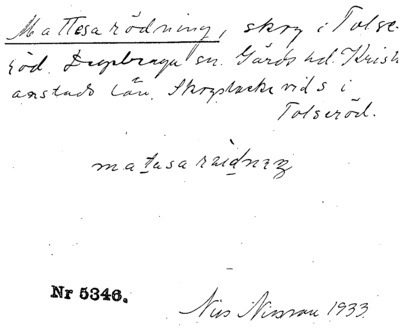 Mattesarödning, skog i Tolse-
röd. Degeberga sn. Gärds hd. Kristi
anstads län. Skogstäcke vid s i
Tolseröd.
matasaraidneŋ
Nr 5346.
Nils Nilsson 1933.